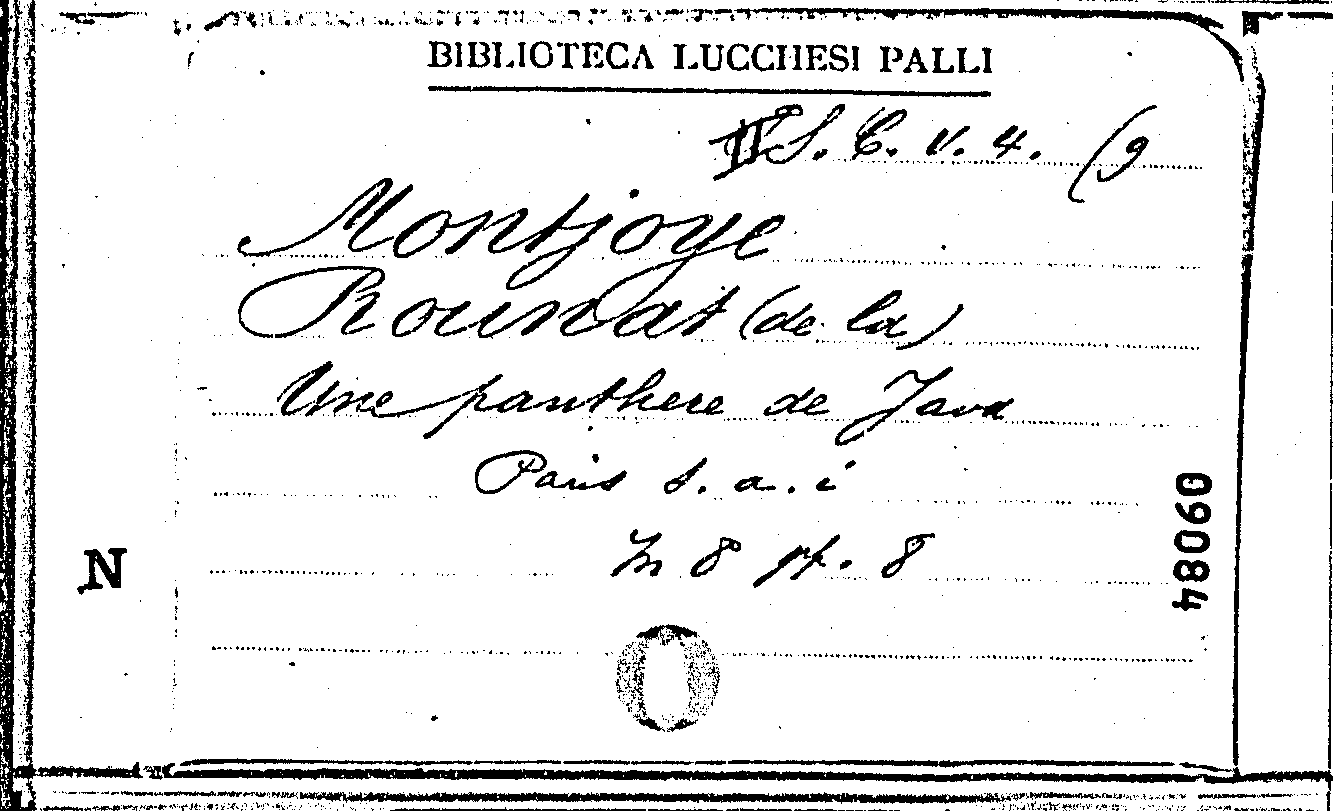 BIBLIOTECA LUCCHESI PALLI
II S. C. V. 4. (9
Montjoye
Rounat (de la)
Une panthere de Java
Paris s. a. i
In 8 pf. 8
N
09084